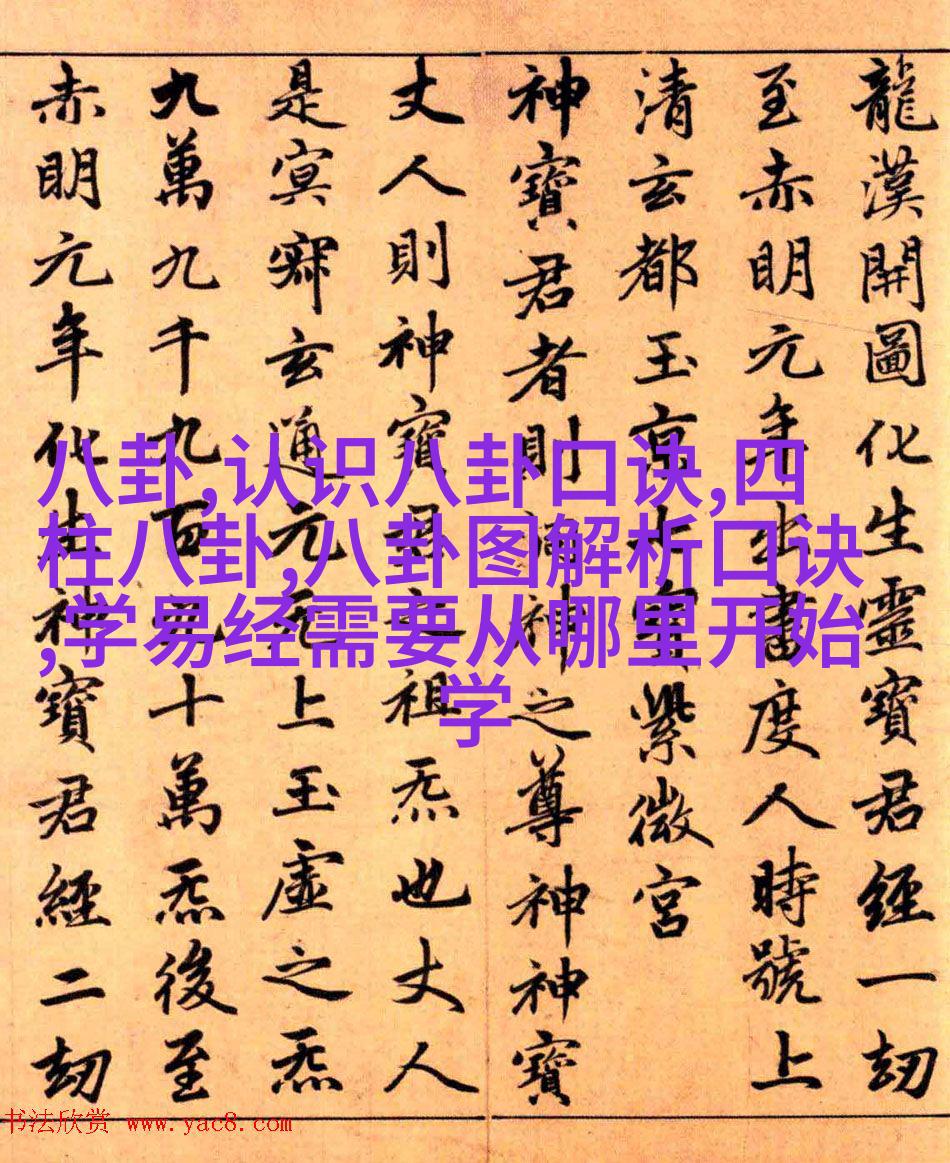 龍漢開圖化生靈寶君經一劫
至赤明元年出書度人時號上
清玄都玉京七寶紫微宮
神寶君者則神之尊神神寶
丈人則神寶君之祖炁也丈人
是冥寂玄通元无上玉虛之炁
九萬九千九百九十萬炁後至
赤明元年化生神寶君經二劫
八卦,认识八卦口诀,四
柱八卦,八卦图解析口诀
,学易经需要从哪里开始
学
书法欣赏 www.yac8.com